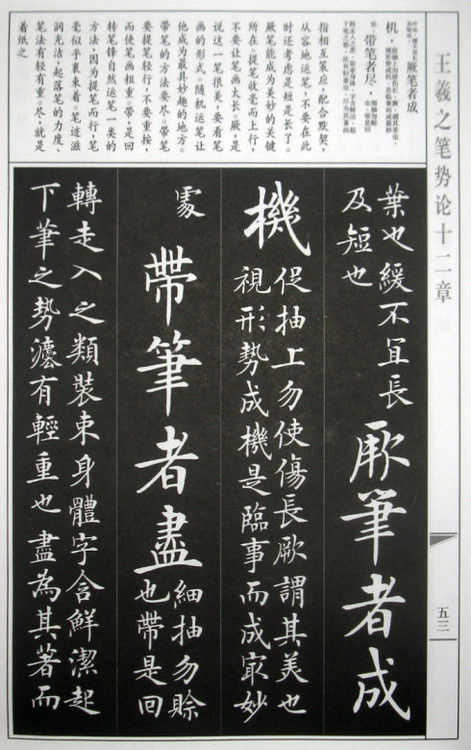 王羲之笔势论十二章
五三
厥笔者成
机,
带笔者尽,
指相互策应,配合默契,
从容地运笔,不要在此
时还考虑是短是长了。
厥笔能成为美妙的关键
所在:提笔收毫而上行,
不要让笔画太长。厥,是
说这一笔很美,要看笔
画的形式,随机运笔让
他成为最具妙趣的地方。
带笔的方法要尽:带笔
要提笔轻行,不要重按,
而使笔画粗。带,是回
转笔锋自然运笔一类的
方法,因为提笔而行,笔
毫似乎裹束着,笔迹滋
润光洁,起落笔的力度、
笔法有轻有重。尽,就是
着纸之
葉也緩不宜長
及短也
厥筆者成
機
促抽上勿使傷長厥謂其美也
視形勢成機是臨事而成最妙
處
帶筆者盡
細抽勿賒
也帶是回
轉走入之類裝束身體字含鮮潔起
下筆之勢灋有輕重也盡為其著而